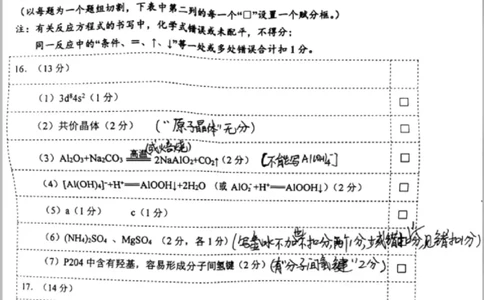 (以每题为一个题组切割，下表中第二列的每一个“□”设置一个赋分框。)
注：有关反应方程式的书写中，化学式错误或未配平，不得分；
同一反应中的“条件、═、↑、↓”等一处或多处错误合计扣1分。
16.（13分）
（1）3d⁸4s²（1分） □
（2）共价晶体（2分） (“原子晶体”无分) □
（3）Al₂O₃+Na₂CO₃ 高温(或焙烧) 2NaAlO₂+CO₂↑（2分） [不能写Al(OH)₄⁻] □
（4）[Al(OH)₄]⁻+H⁺═AlOOH↓+2H₂O（或 AlO₂⁻+H⁺═AlOOH↓）（2分） □
（5）a（1分） c（1分） □
（6）(NH₄)₂SO₄、MgSO₄（2分，各1分） □
（7）P204中含有羟基，容易形成分子间氢键（2分） (有“分子间氢键”2分) □
17.（14分）